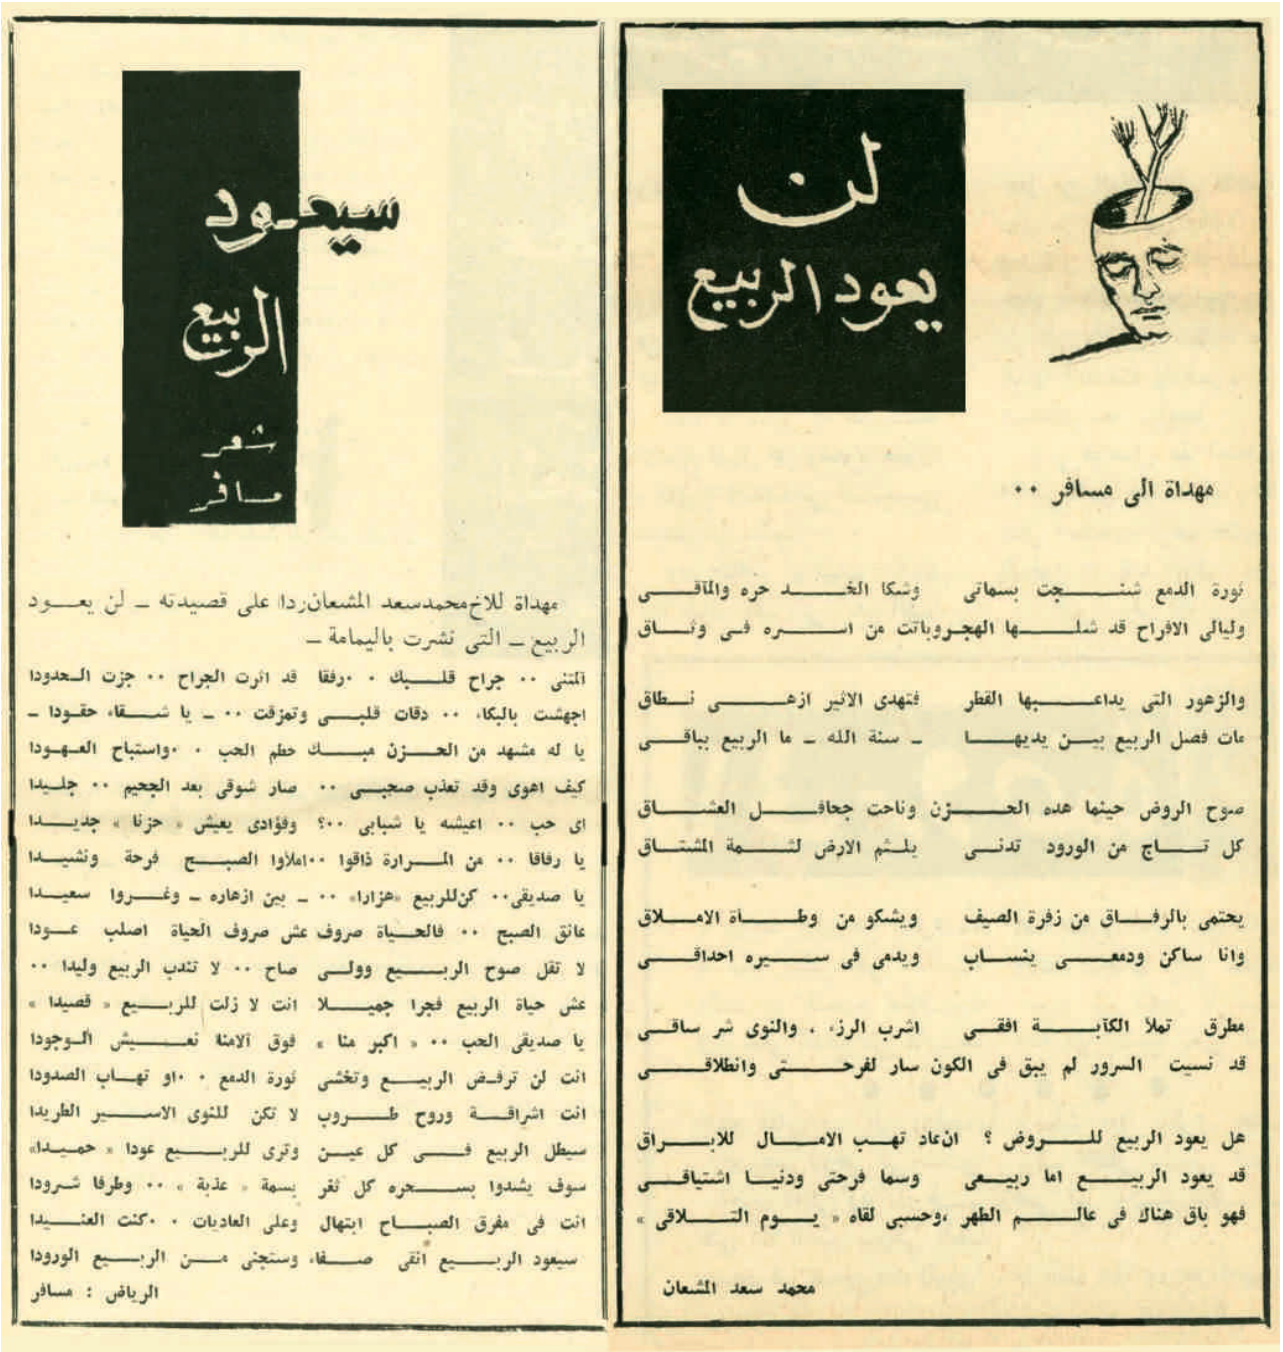 لن
يعود الربيع
مهداة الى مسافر ..
ثورة الدمع شنجت بسماتى وشكا الخد حره والمآقى
وليالى الافراح قد شلها الهجر وباتت من اسره فى وثاق
والزهور التى يداعبها القطر فتهدى الاثير ازهى نطاق
مات فصل الربيع بين يديها ـ سنة الله ـ ما الربيع بباقى
صوح الروض حينها هده الحزن وناحت جحافل العشاق
كل تاج من الورود تدنى يلثم الارض لثمة المشتاق
يحتمى بالرفاق من زفرة الصيف ويشكو من وطأة الاملاق
وانا ساكن ودمعى ينساب ويدمى فى سيره احداقى
مطرق تملأ الكآبة افقى اشرب الرزء ، والنوى شر ساقى
قد نسيت السرور لم يبق فى الكون سار لفرحتى وانطلاقى
هل يعود الربيع للروض ؟ ان عاد تهب الامال للابراق
قد يعود الربيع اما ربيعى وسما فرحتى ودنيا اشتياقى
فهو باق هناك فى عالم الطهر ،وحسبى لقاه « يوم التلاقى »
محمد سعد المشعان
سيعود
الربيع
شعر
مسافر
مهداة للاخ محمد سعد المشعان ردا على قصيدته ـ لن يعود
الربيع ـ التى نشرت باليمامة ـ
آلمتنى .. جراح قلبك . .رفقا قد اثرت الجراح .. جزت الحدودا
اجهشت بالبكاء .. دقات قلبى وتمزقت .. ـ يا شقاء حقودا ـ
يا له مشهد من الحزن مبك حطم الحب . .واستباح العهودا
كيف اهوى وقد تعذب صحبى .. صار شوقى بعد الجحيم .. جليدا
اى حب .. اعيشه يا شبابى ..؟ وفؤادى يعيش « حزنا » جديدا
يا رفاقا .. من المرارة ذاقوا ..املأوا الصبح فرحة ونشيدا
يا صديقى.. كن للربيع «هزارا» .. ـ بين ازهاره ـ وغروا سعيدا
عانق الصبح .. فالحياة صروف عش صروف الحياة اصلب عودا
لا تقل صوح الربيع وولى صاح .. لا تندب الربيع وليدا ..
عش حياة الربيع فجرا جميلا انت لا زلت للربيع « قصيدا »
يا صديقى الحب .. « اكبر منا » فوق آلامنا نعيش الوجودا
انت لن ترفض الربيع وتخشى ثورة الدمع . .او تهاب الصدودا
انت اشراقة وروح طروب لا تكن للنوى الاسير الطريدا
سيطل الربيع فى كل عين وترى للربيع عودا « حميدا»
سوف يشدوا بسحره كل ثغر بسمة « عذبة » .. وطرفا شرودا
انت فى مفرق الصباح ابتهال وعلى العاديات . .كنت العنيدا
سيعود الربيع أنقى صفاء وستجنى من الربيع الورودا
الرياض : مسافر